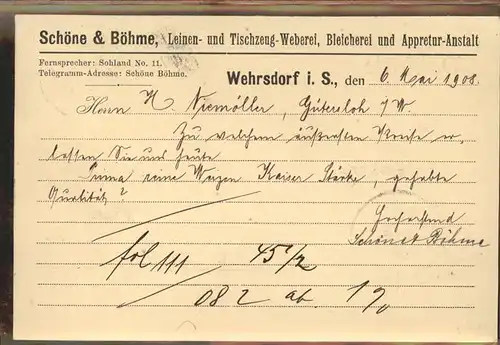 Schöne & Böhme, Leinen- und Tischzeug-Weberei, Bleicherei und Appretur-Anstalt
Fernsprecher: Sohland No. 11.
Telegramm-Adresse: Schöne Böhme.
Wehrsdorf i. S., den 6. Mai 1908.
Herrn H Niemöller, Gütersloh i/W.
Zu welchem äußersten Preise er,
lassen Sie uns heute
Prima reine Weizen Kaiser Stärke, gehabte
Qualität?
Hochachtend
Schöne & Böhme
fol 111 45 1/2
082 ab. 1%